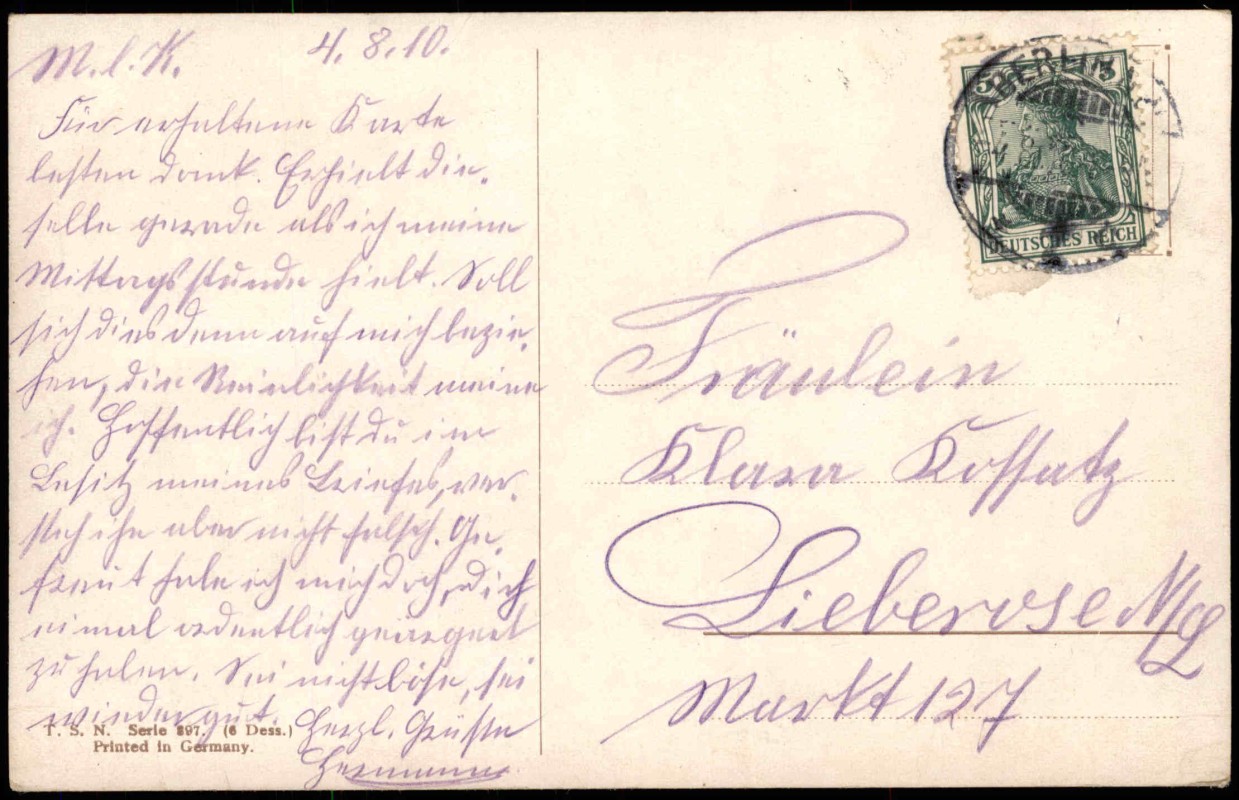 M. l. K. 4. 8. 10.
Für erhaltene Karte
besten Dank. Erhielt die-
selbe gerade als ich meine
Mittagsstunde hielt. Soll
sich dies denn auf mich bezie-
hen, die Reinlichkeit meine
ich. Hoffentlich bist du im
Besitz meines Briefes, ver-
steh ihn aber nicht falsch. Ge-
freut habe ich mich doch, dich
einmal ordentlich geärgert
zu haben. Sei nicht böse, sei
wieder gut. Herzl. Grüße
Hermann
T. S. N. Serie 897. (6 Dess.)
Printed in Germany.
BERLIN
5 5
DEUTSCHES REICH
Fräulein
Klara Kossatz
Lieberose N/L
Markt 127